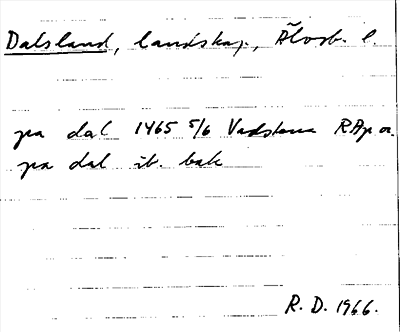 Dalsland, landskap, Älvsb. l.
pa dal 1465 5/6 Vadstena RAp or.
pa dal ib. bak
R. D. 1966.